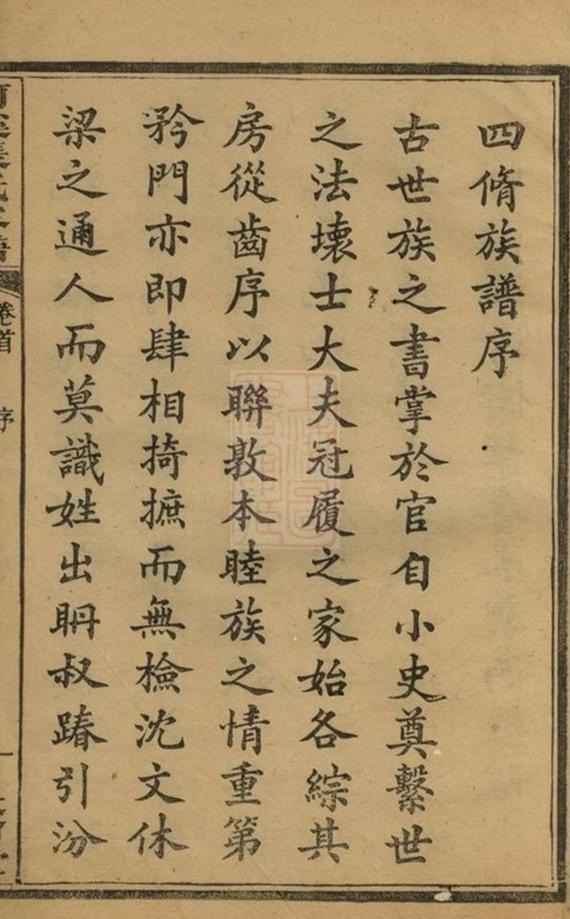 四脩族譜序
古世族之書掌於官自小史奠繫世
之法壞士大夫冠履之家始各綜其
房從齒序以聯敦本睦族之情重第
矜門亦即肆相掎摭而無檢沈文休
梁之通人而莫識姓出聃叔踳引汾
卷首
序